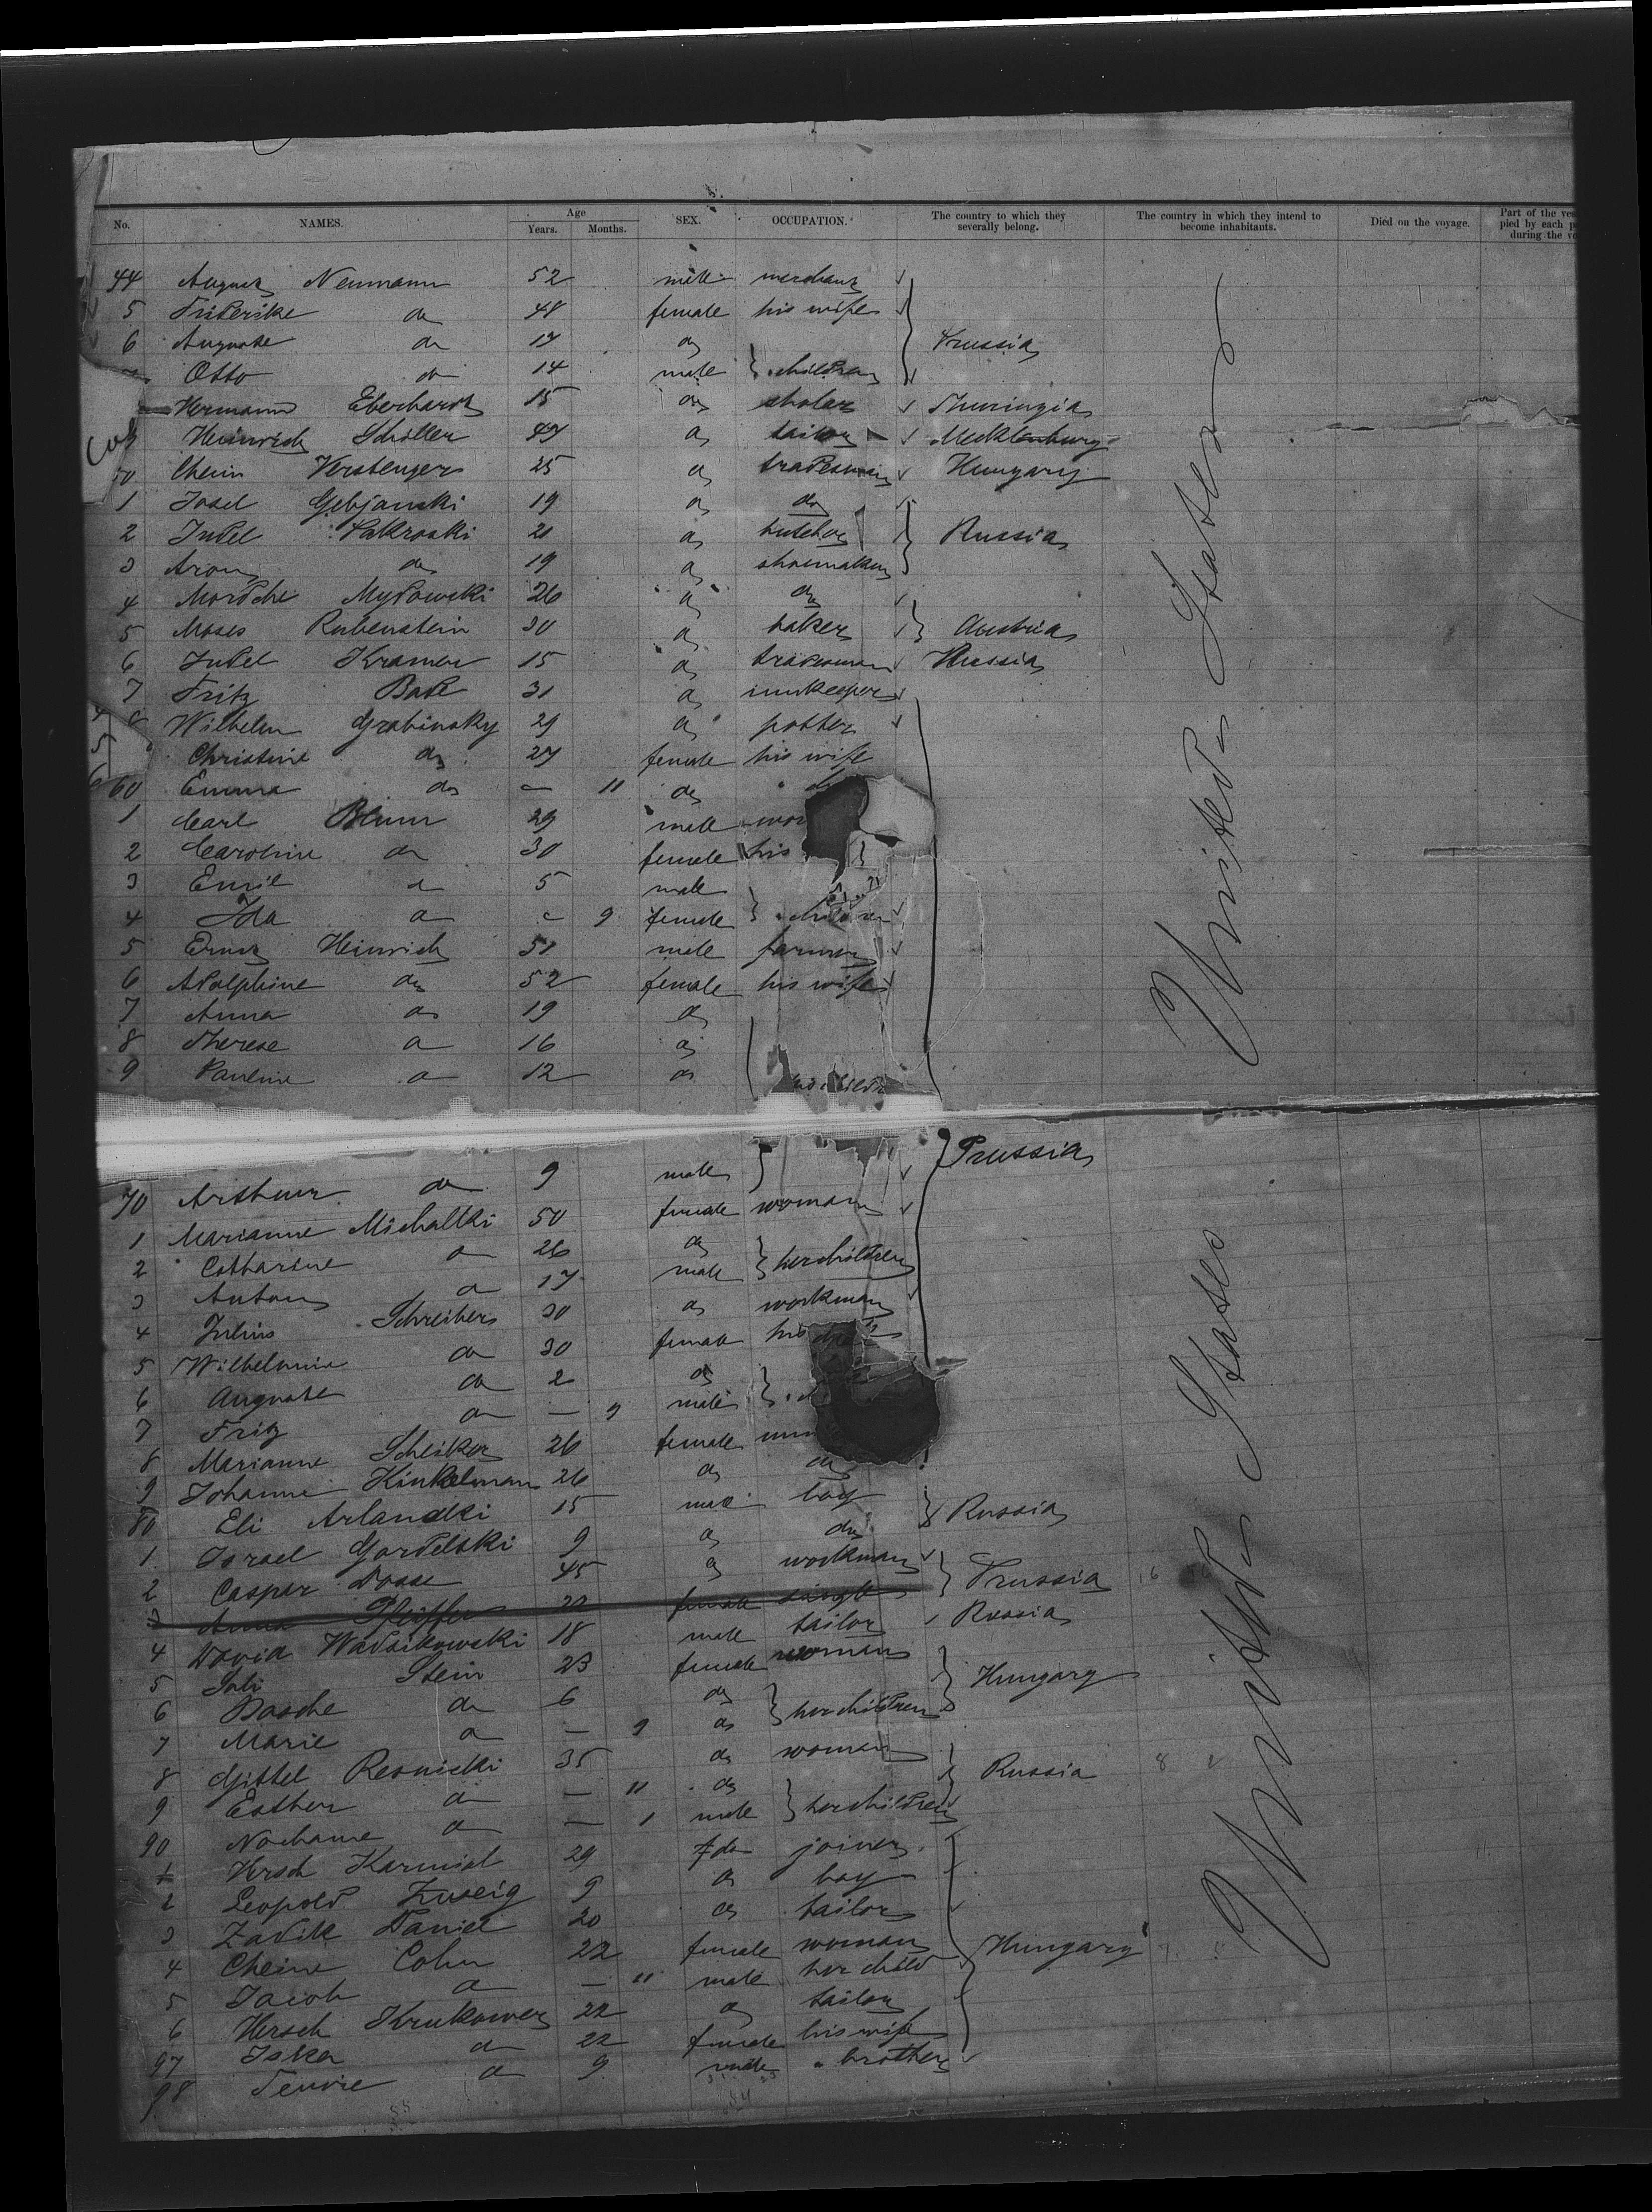 No. NAMES. Age Years. Months. SEX. OCCUPATION. The country to which they severally belong. The country in which they intend to become inhabitants. Died on the voyage. Part of the pied by each during the
44 August Neumann 52 male merchant
5 Friderike do 48 female his wife
6 Auguste do 17 do Prussia
Otto do 14 male children
Hermann Eberhardt 15 do scholar Thuringia
Heinrich Schiller 47 do tailor Mecklenburg
50 Chein Verstenger 25 do tradesman Hungary
1 Josel Gebjanski 19 do do
2 Judel Pakroski 21 do butcher Russia
3 Aron do 19 do shoemaker
4 Mordche Mydowski 26 do do
5 Moses Rubenstein 30 do baker Austria
6 Judel Kramer 15 do tradesman Russia
7 Fritz Bade 31 do innkeeper
8 Wilhelm Grabinsky 29 do potter
Christine do 27 female his wife
60 Emma do — 11 do
1 Carl Blum 29 male
2 Caroline do 30 female his
3 Emil do 5 male
4 Ida do — 9 female children
5 Ernst Heinrich 51 male farmer
6 Adolphine do 52 female his wife
7 Anna do 19 do
8 Therese do 16 do
9 Pauline do 12 do
Prussia
70 Arthur do 9 male
1 Marianne Michaltki 50 female woman
2 Catharine do 26 do her children
3 Anton do 17 male
4 Julius Schreiber 30 do workman
5 Wilhelmine do 30 female his
6 Auguste do 2 do
7 Fritz do — 9 male
8 Marianne Scheiker 26 female
9 Johanne Hinkelman 26 do do
80 Eli Arlandki 15 male boy Russia
1 Israel Gordelski 9 do do
2 Caspar Dosse 45 do workman Prussia
3 Anna Pfeiffer 22 female single
4 David Wadsikowski 18 male tailor Russia
5 Sali Stein 23 female woman Hungary
6 Basche do 6 do her children
7 Marie do — 9 do
8 Gittel Resnicki 35 do woman Russia
9 Esther do — 11 do her children
90 Nochame do — 1 male
1 Hersch Karmial 29 do joiner
2 Leopold Zweig 9 do boy
3 Zadik Daniel 20 do tailor
4 Cheine Cohn 22 female woman Hungary
5 Jacob do — 11 male her child
6 Hersch Krukower 22 do tailor
97 Iska do 22 female his wife
98 Tewie do 9 male " brother
United States
United States